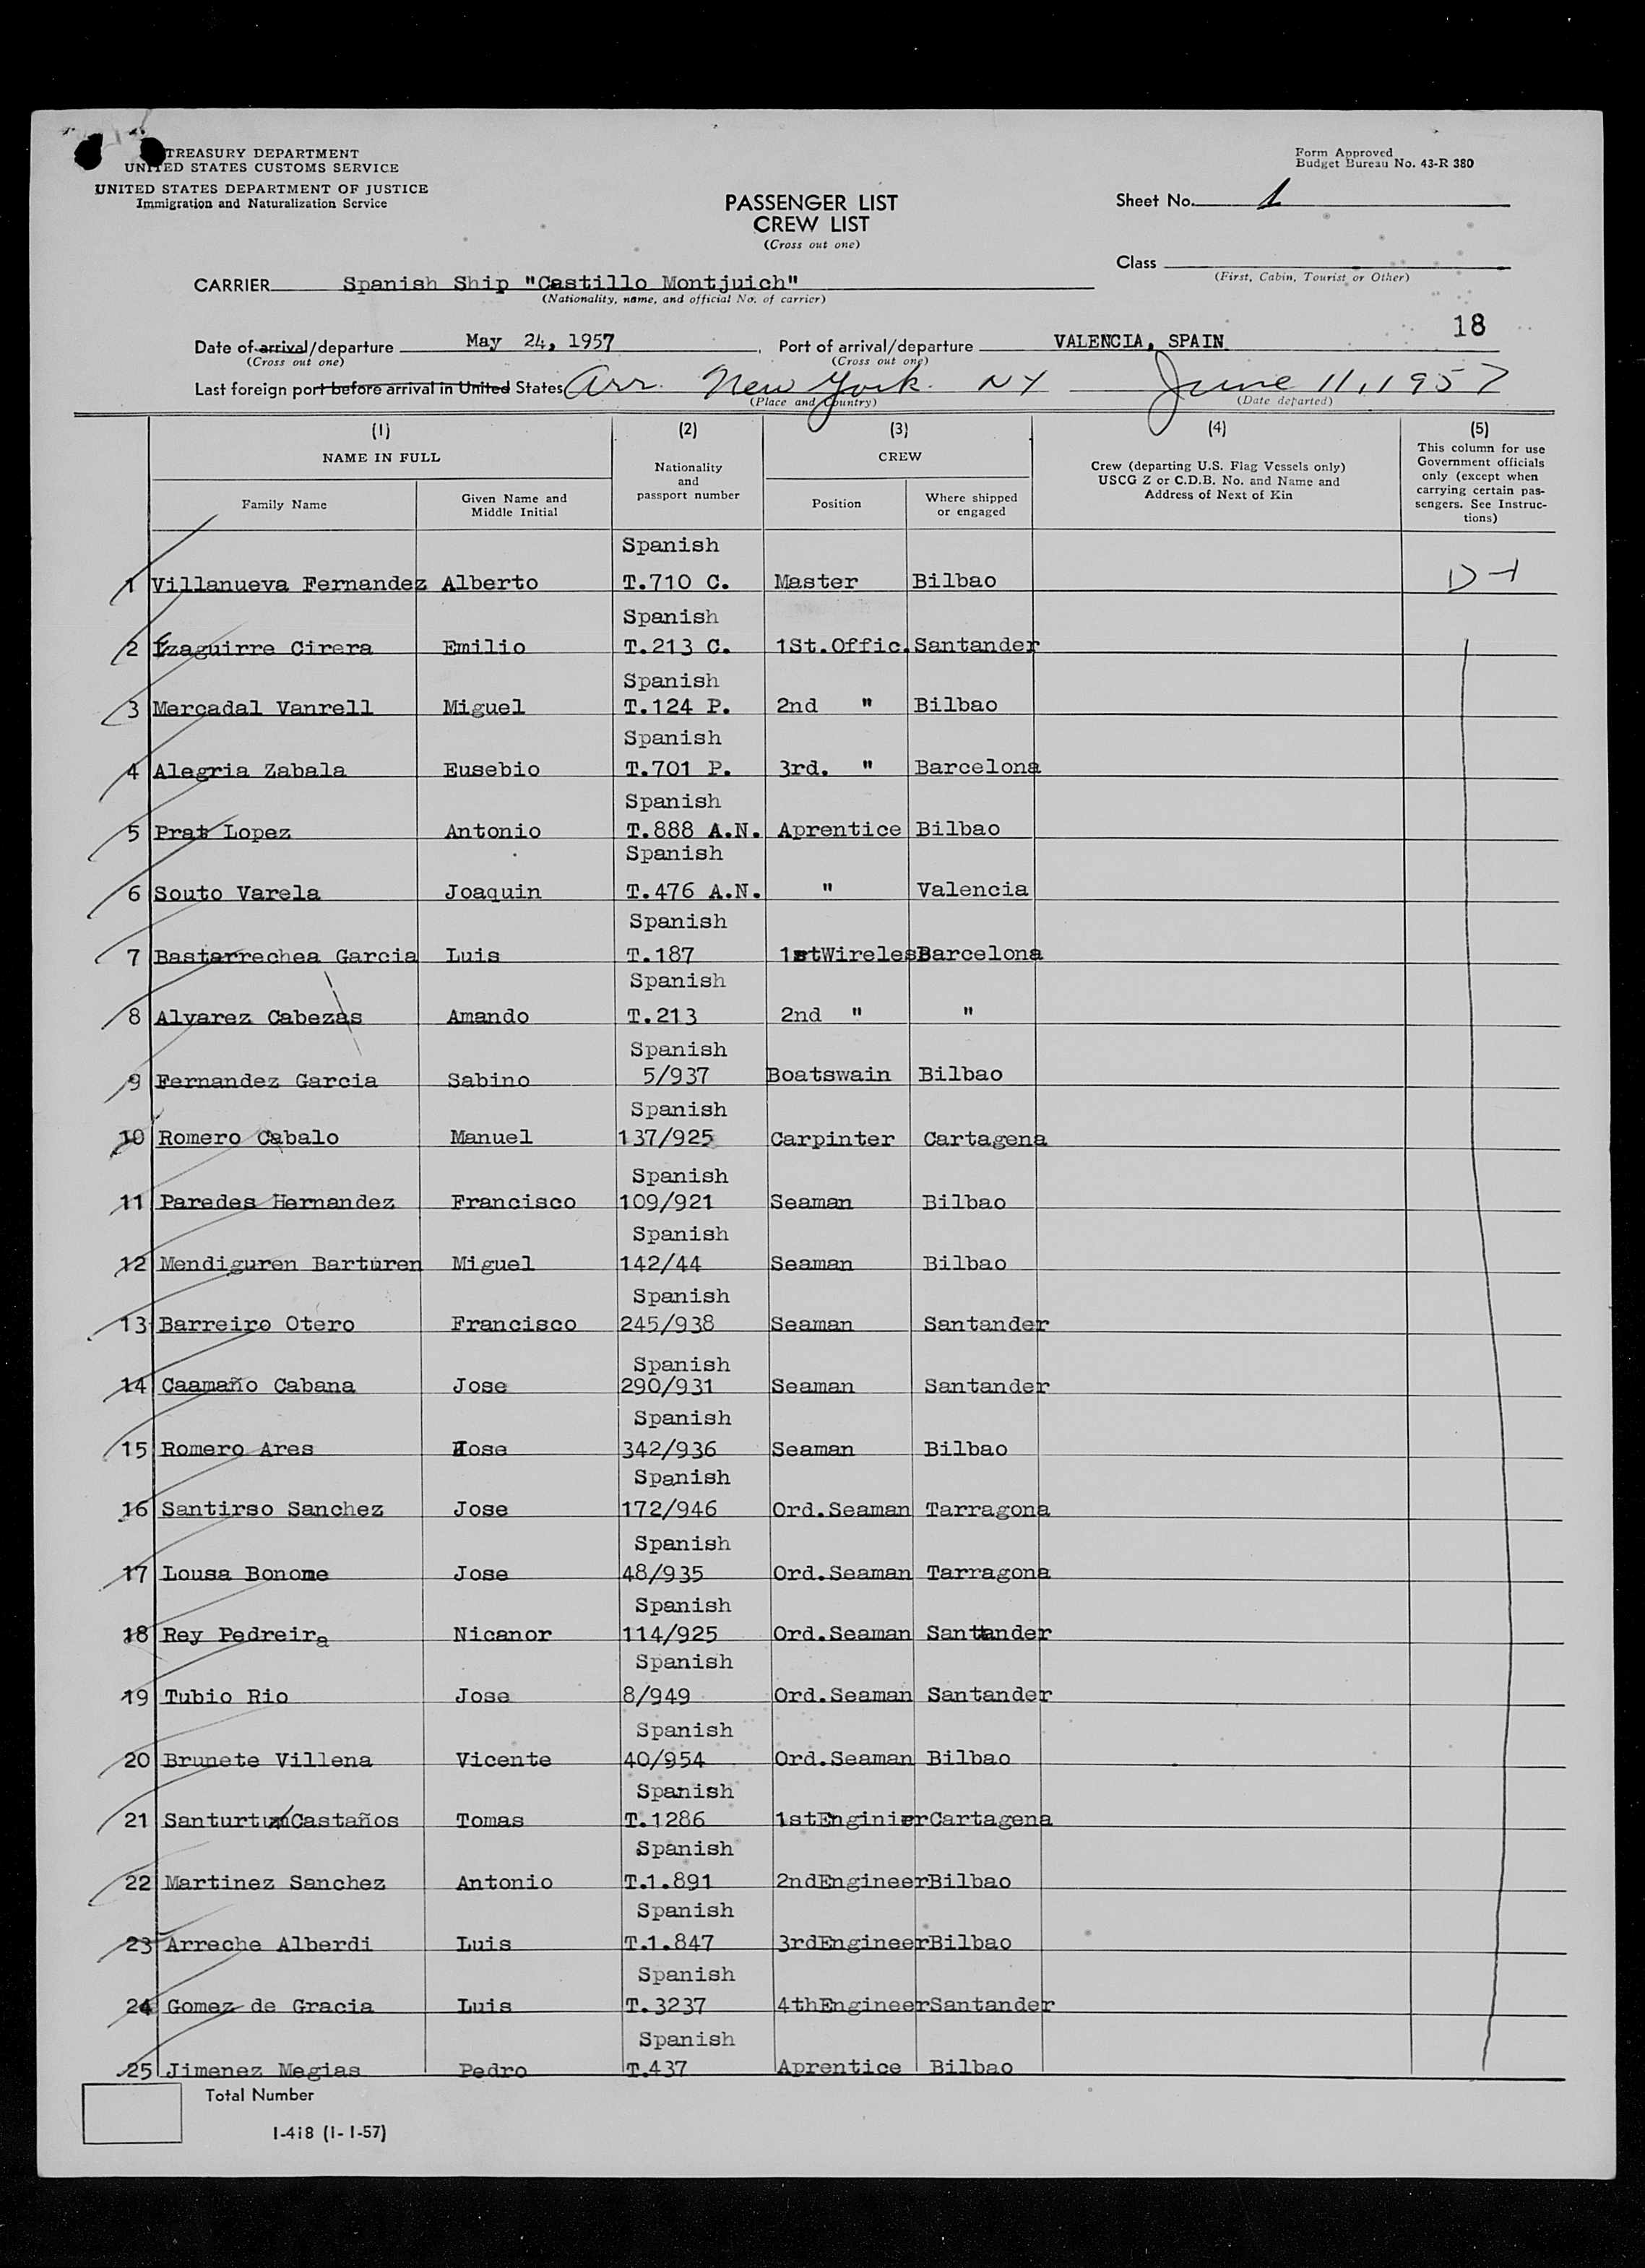 TREASURY DEPARTMENT
UNITED STATES CUSTOMS SERVICE
UNITED STATES DEPARTMENT OF JUSTICE
Immigration and Naturalization Service
Form Approved
Budget Bureau No. 43-R 380
PASSENGER LIST
CREW LIST
(Cross out one)
Sheet No. 1
Class
(First, Cabin, Tourist or Other)
CARRIER Spanish Ship "Castillo Montjuich"
(Nationality, name, and official No. of carrier)
18
Date of arrival/departure May 24, 1957 Port of arrival/departure VALENCIA, SPAIN
(Cross out one) (Cross out one)
Last foreign port before arrival in United States Arr. New York. NY June 11, 1957
(Place and Country) (Date departed)
(1) (2) (3) (4) (5)
NAME IN FULL
Family Name
Given Name and
Middle Initial
Nationality
and
passport number
CREW
Position
Where shipped
or engaged
Crew (departing U.S. Flag Vessels only)
USCG Z or C.D.B. No. and Name and
Address of Next of Kin
This column for use
Government officials
only (except when
carrying certain pas-
sengers. See Instruc-
tions)
Spanish
1 Villanueva Fernandez Alberto T.710 C. Master Bilbao D-1
Spanish
2 Ezaguirre Cirera Emilio T.213 C. 1St.Offic. Santander
Spanish
3 Mercadal Vanrell Miguel T.124 P. 2nd " Bilbao
Spanish
4 Alegria Zabala Eusebio T.701 P. 3rd. " Barcelona
Spanish
5 Prat Lopez Antonio T.888 A.N. Aprentice Bilbao
Spanish
6 Souto Varela Joaquin T.476 A.N. " Valencia
Spanish
7 Bastarrechea Garcia Luis T.187 1stWireless Barcelona
Spanish
8 Alvarez Cabezas Amando T.213 2nd " "
Spanish
9 Fernandez Garcia Sabino 5/937 Boatswain Bilbao
Spanish
10 Romero Cabalo Manuel 137/925 Carpinter Cartagena
Spanish
11 Paredes Hernandez Francisco 109/921 Seaman Bilbao
Spanish
12 Mendiguren Barturen Miguel 142/44 Seaman Bilbao
Spanish
13 Barreiro Otero Francisco 245/938 Seaman Santander
Spanish
14 Caamaño Cabana Jose 290/931 Seaman Santander
Spanish
15 Romero Ares Jose 342/936 Seaman Bilbao
Spanish
16 Santirso Sanchez Jose 172/946 Ord.Seaman Tarragona
Spanish
17 Lousa Bonome Jose 48/935 Ord.Seaman Tarragona
Spanish
18 Rey Pedreira Nicanor 114/925 Ord.Seaman Santander
Spanish
19 Tubio Rio Jose 8/949 Ord.Seaman Santander
Spanish
20 Brunete Villena Vicente 40/954 Ord.Seaman Bilbao
Spanish
21 Santurtun Castaños Tomas T.1286 1stEnginier Cartagena
Spanish
22 Martinez Sanchez Antonio T.1.891 2ndEngineer Bilbao
Spanish
23 Arreche Alberdi Luis T.1.847 3rdEngineer Bilbao
Spanish
24 Gomez de Gracia Luis T.3237 4thEngineer Santander
Spanish
25 Jimenez Megias Pedro T.437 Aprentice Bilbao
Total Number
I-418 (1-1-57)